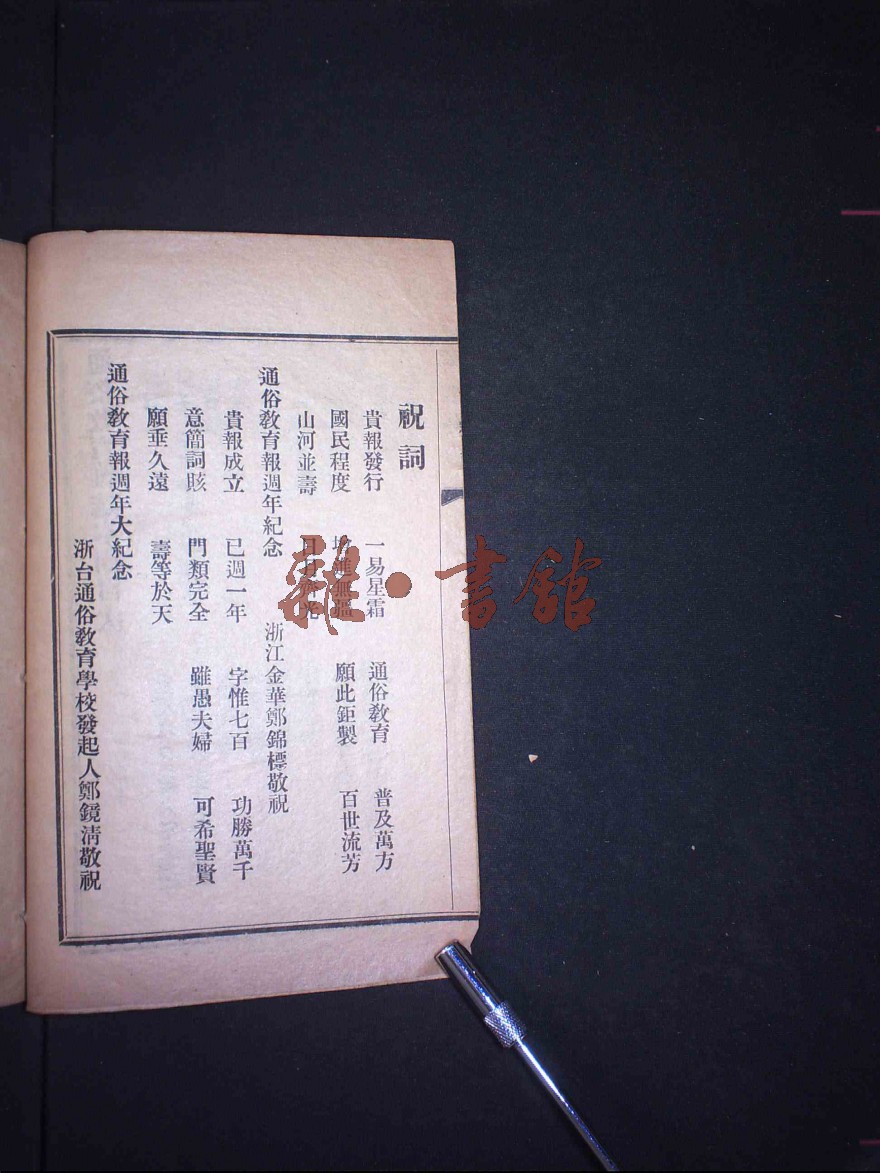 祝詞
貴報發行 一易星霜 通俗教育 普及萬方
國民程度 增進無疆 願此鉅製 百世流芳
山河並壽 日月齊光
通俗教育報週年紀念 浙江金華鄭錦標敬祝
貴報成立 已週一年 字惟七百 功勝萬千
意簡詞賅 門類完全 雖愚夫婦 可希聖賢
願垂久遠 壽等於天
通俗教育報週年大紀念
浙台通俗教育學校發起人鄭鏡淸敬祝
雜·書館